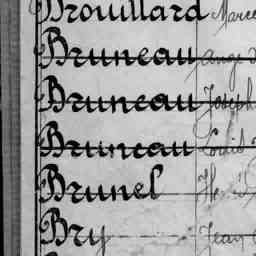 Brouillard Marce
Bruneau ange
Bruneau Joseph
Bruneau Louis
Brunel
Bry Jean